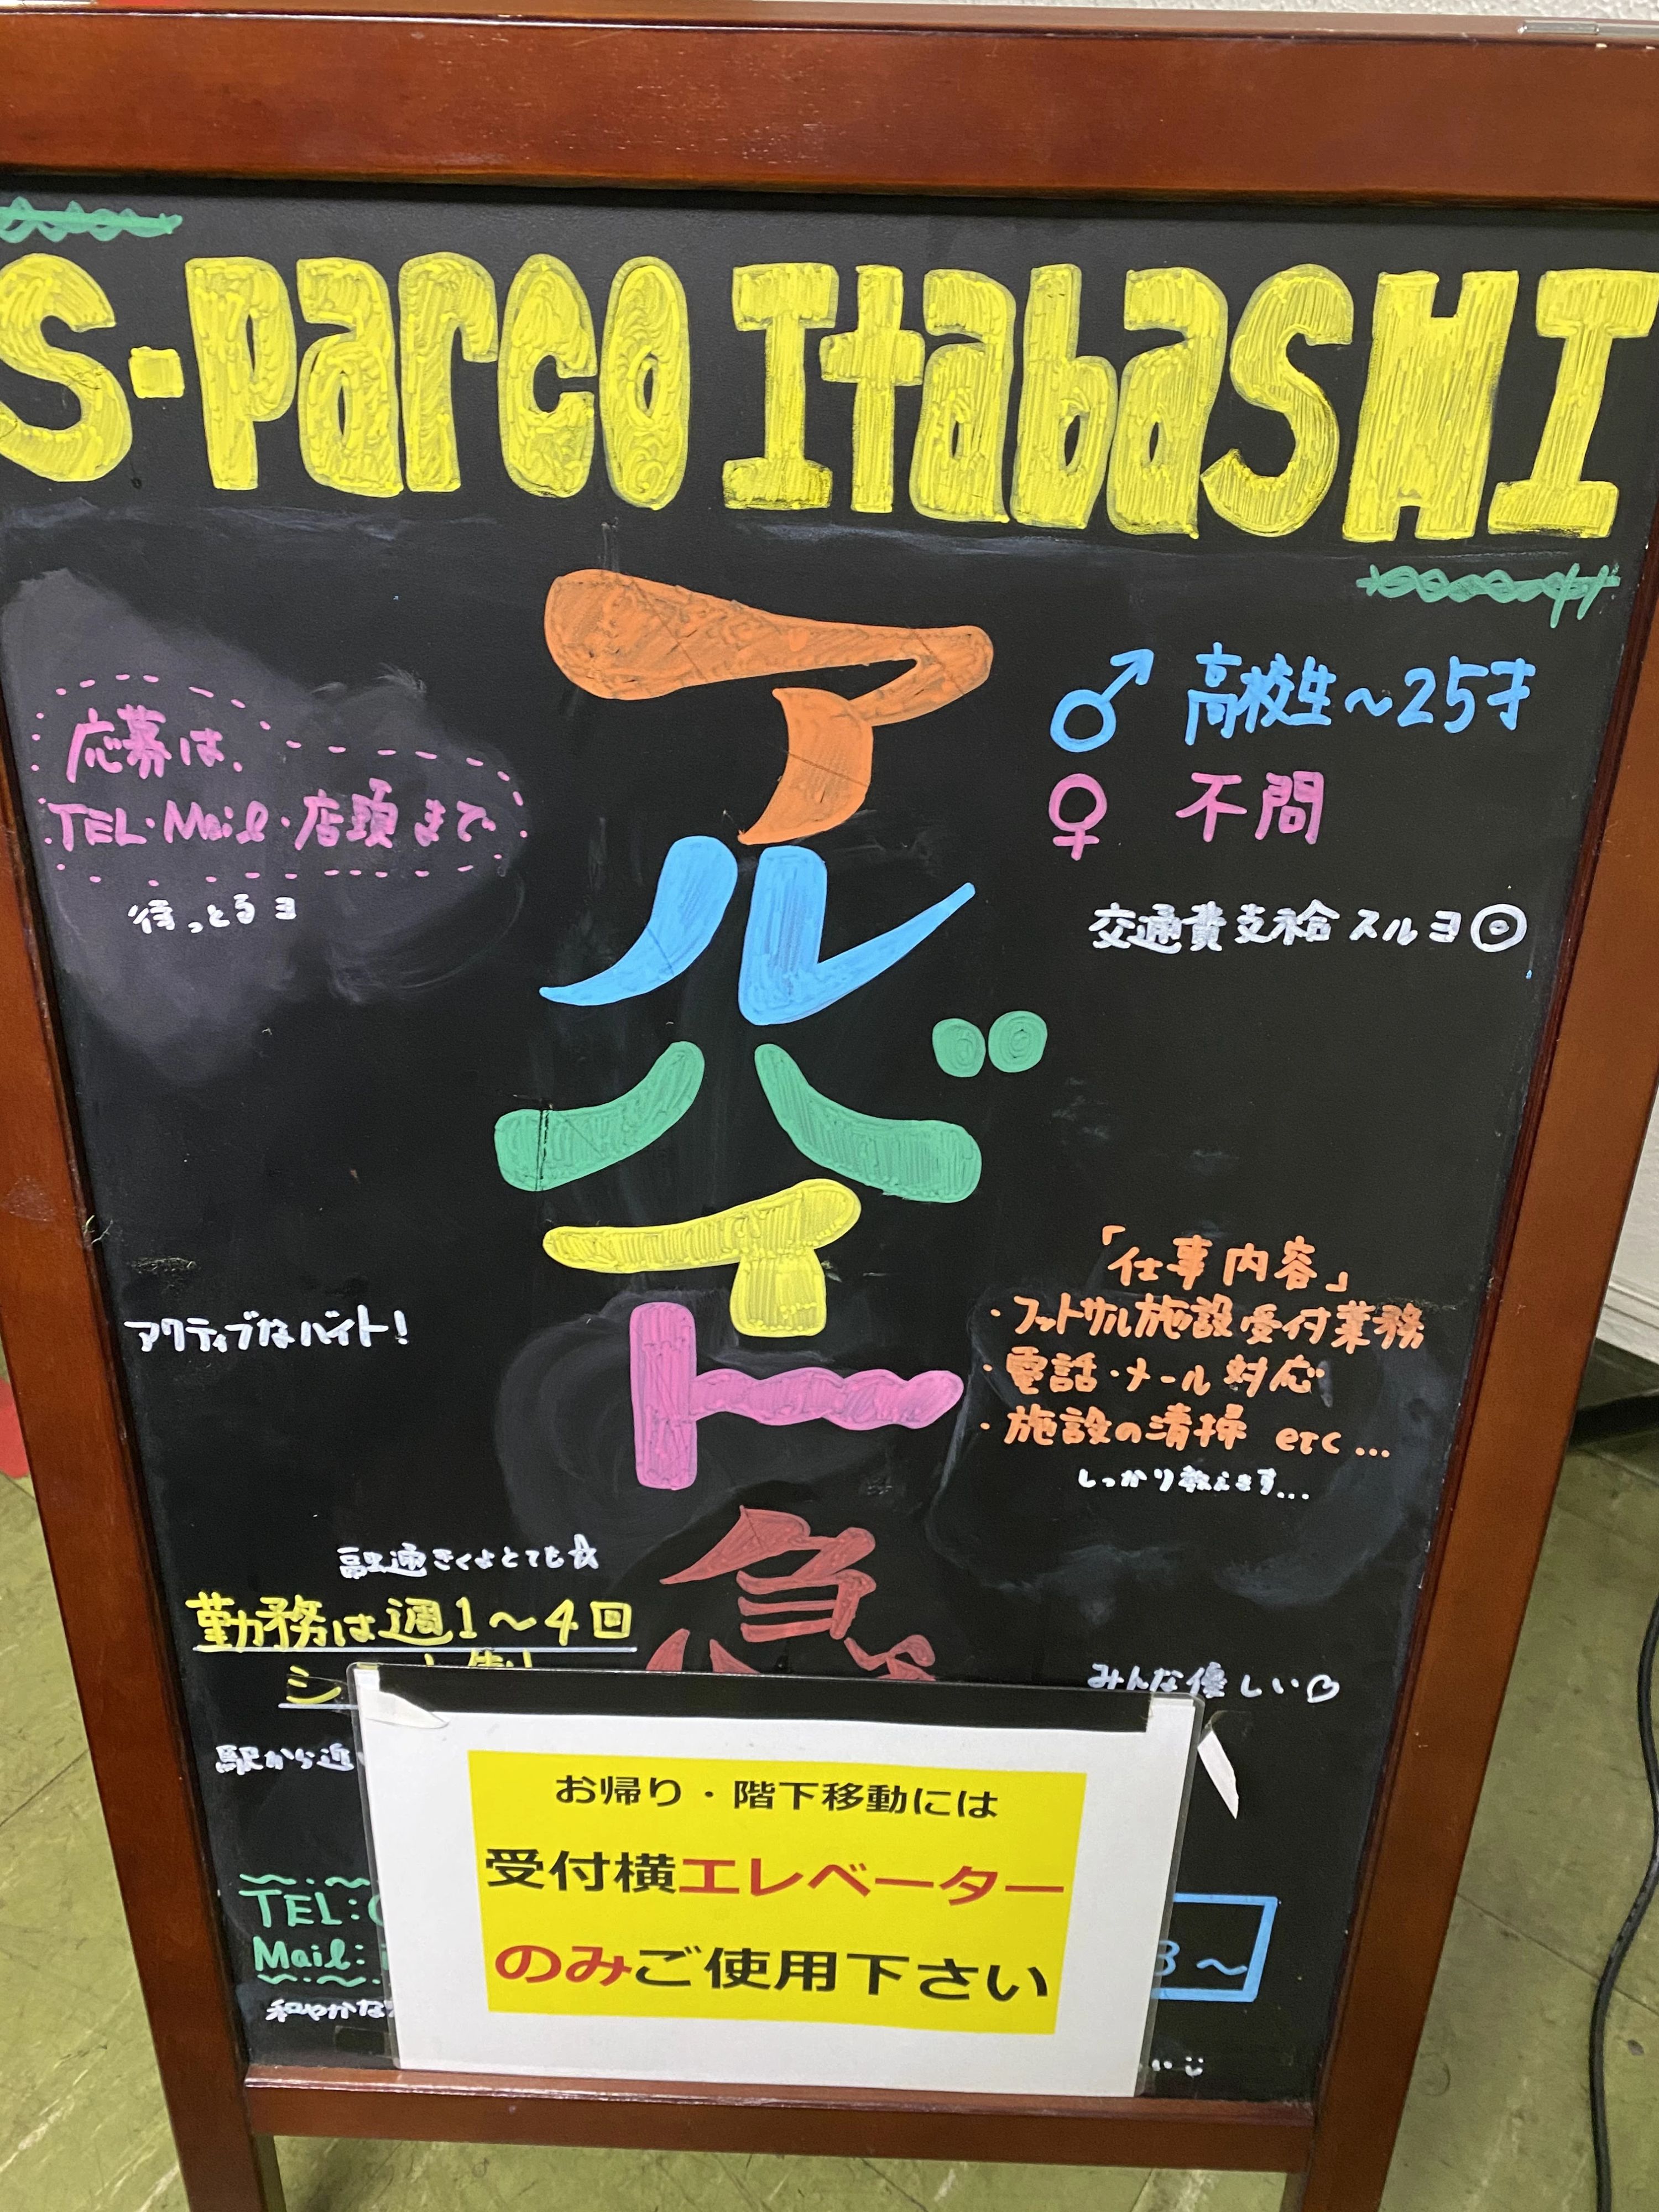 S-Parco ItabaSHI
アルバイト急
応募は、
TEL・Mail・店頭まで
待っとるヨ
♂ 高校生～25才
♀ 不問
交通費支給スルヨ
アクティブなバイト!
「仕事内容」
・フットサル施設受付業務
・電話・メール対応
・施設の清掃 etc...
しっかり教えます...
融通きくよとても☆
勤務は週1～4回
シ
みんな優しい
駅から近
TEL:
Mail:
和やかな
3～
お帰り・階下移動には
受付横エレベーター
のみご使用下さい